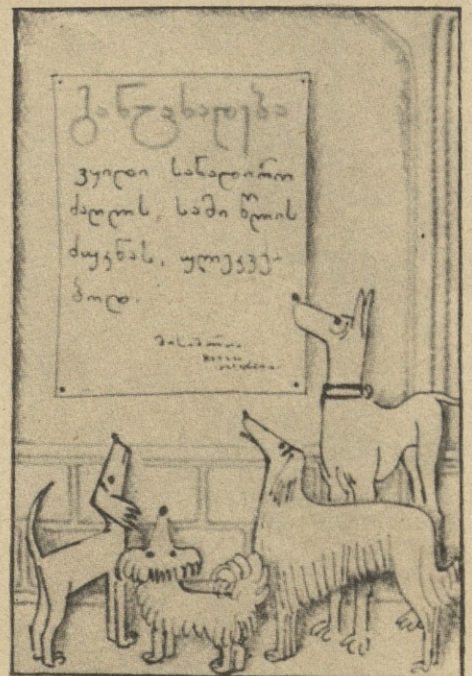 განცხადება
ვყიდი სანადირო
ძაღლს, სამი წლის
ძუკნას, ულეკვე-
ბოდ.
მისამართი